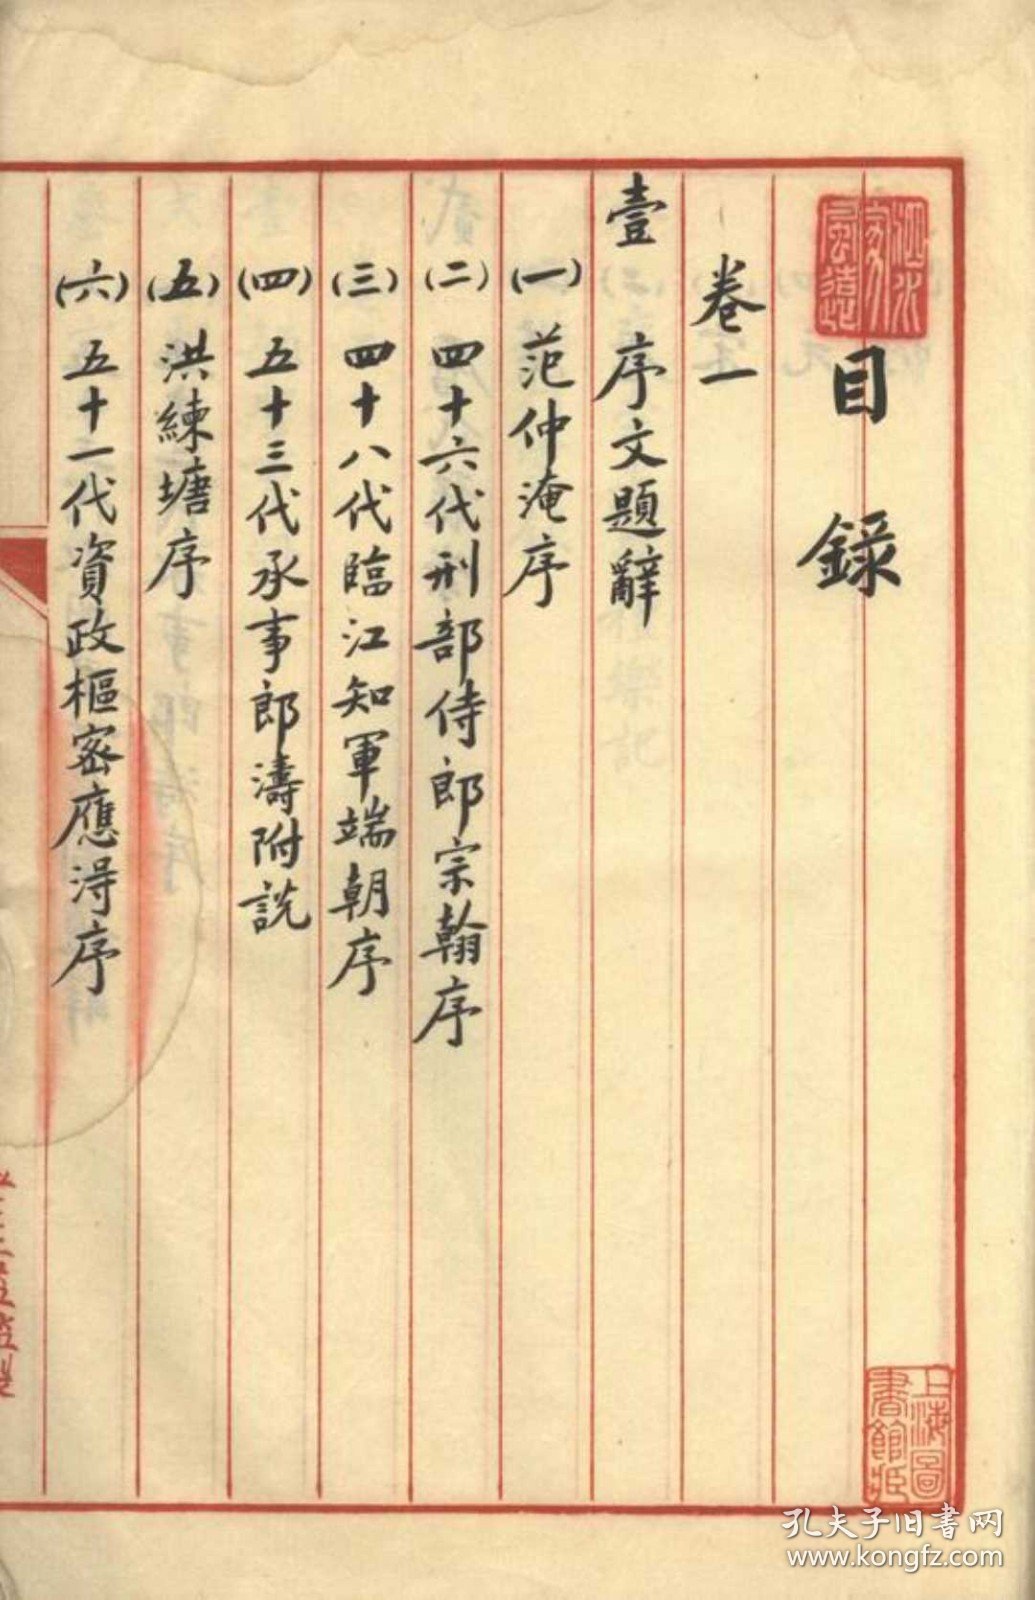 目錄
卷一
壹 序文題辭
(一) 范仲淹序
(二) 四十六代刑部侍郎宗翰序
(三) 四十八代臨江知軍端朝序
(四) 五十三代承事郎濤附説
(五) 洪練塘序
(六) 五十一代資政樞密應得序
上海圖書館藏
孔夫子旧書网
www.kongfz.com